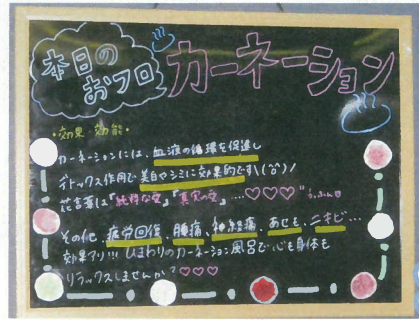 本日の
おフロ
カーネーション
・効果・効能・
カーネーションには、血液の循環を促進し
デトックス作用で美白やシミに効果的です\(^o^)/
花言葉は"純粋な愛""真実の愛"…♡♡♡"うっふん♡
その他、疲労回復、腰痛、神経痛、あせも、ニキビ…
効果アリ!!! ひまわりのカーネーション風呂で心も身体も
リラックスしませんか?♡♡♡